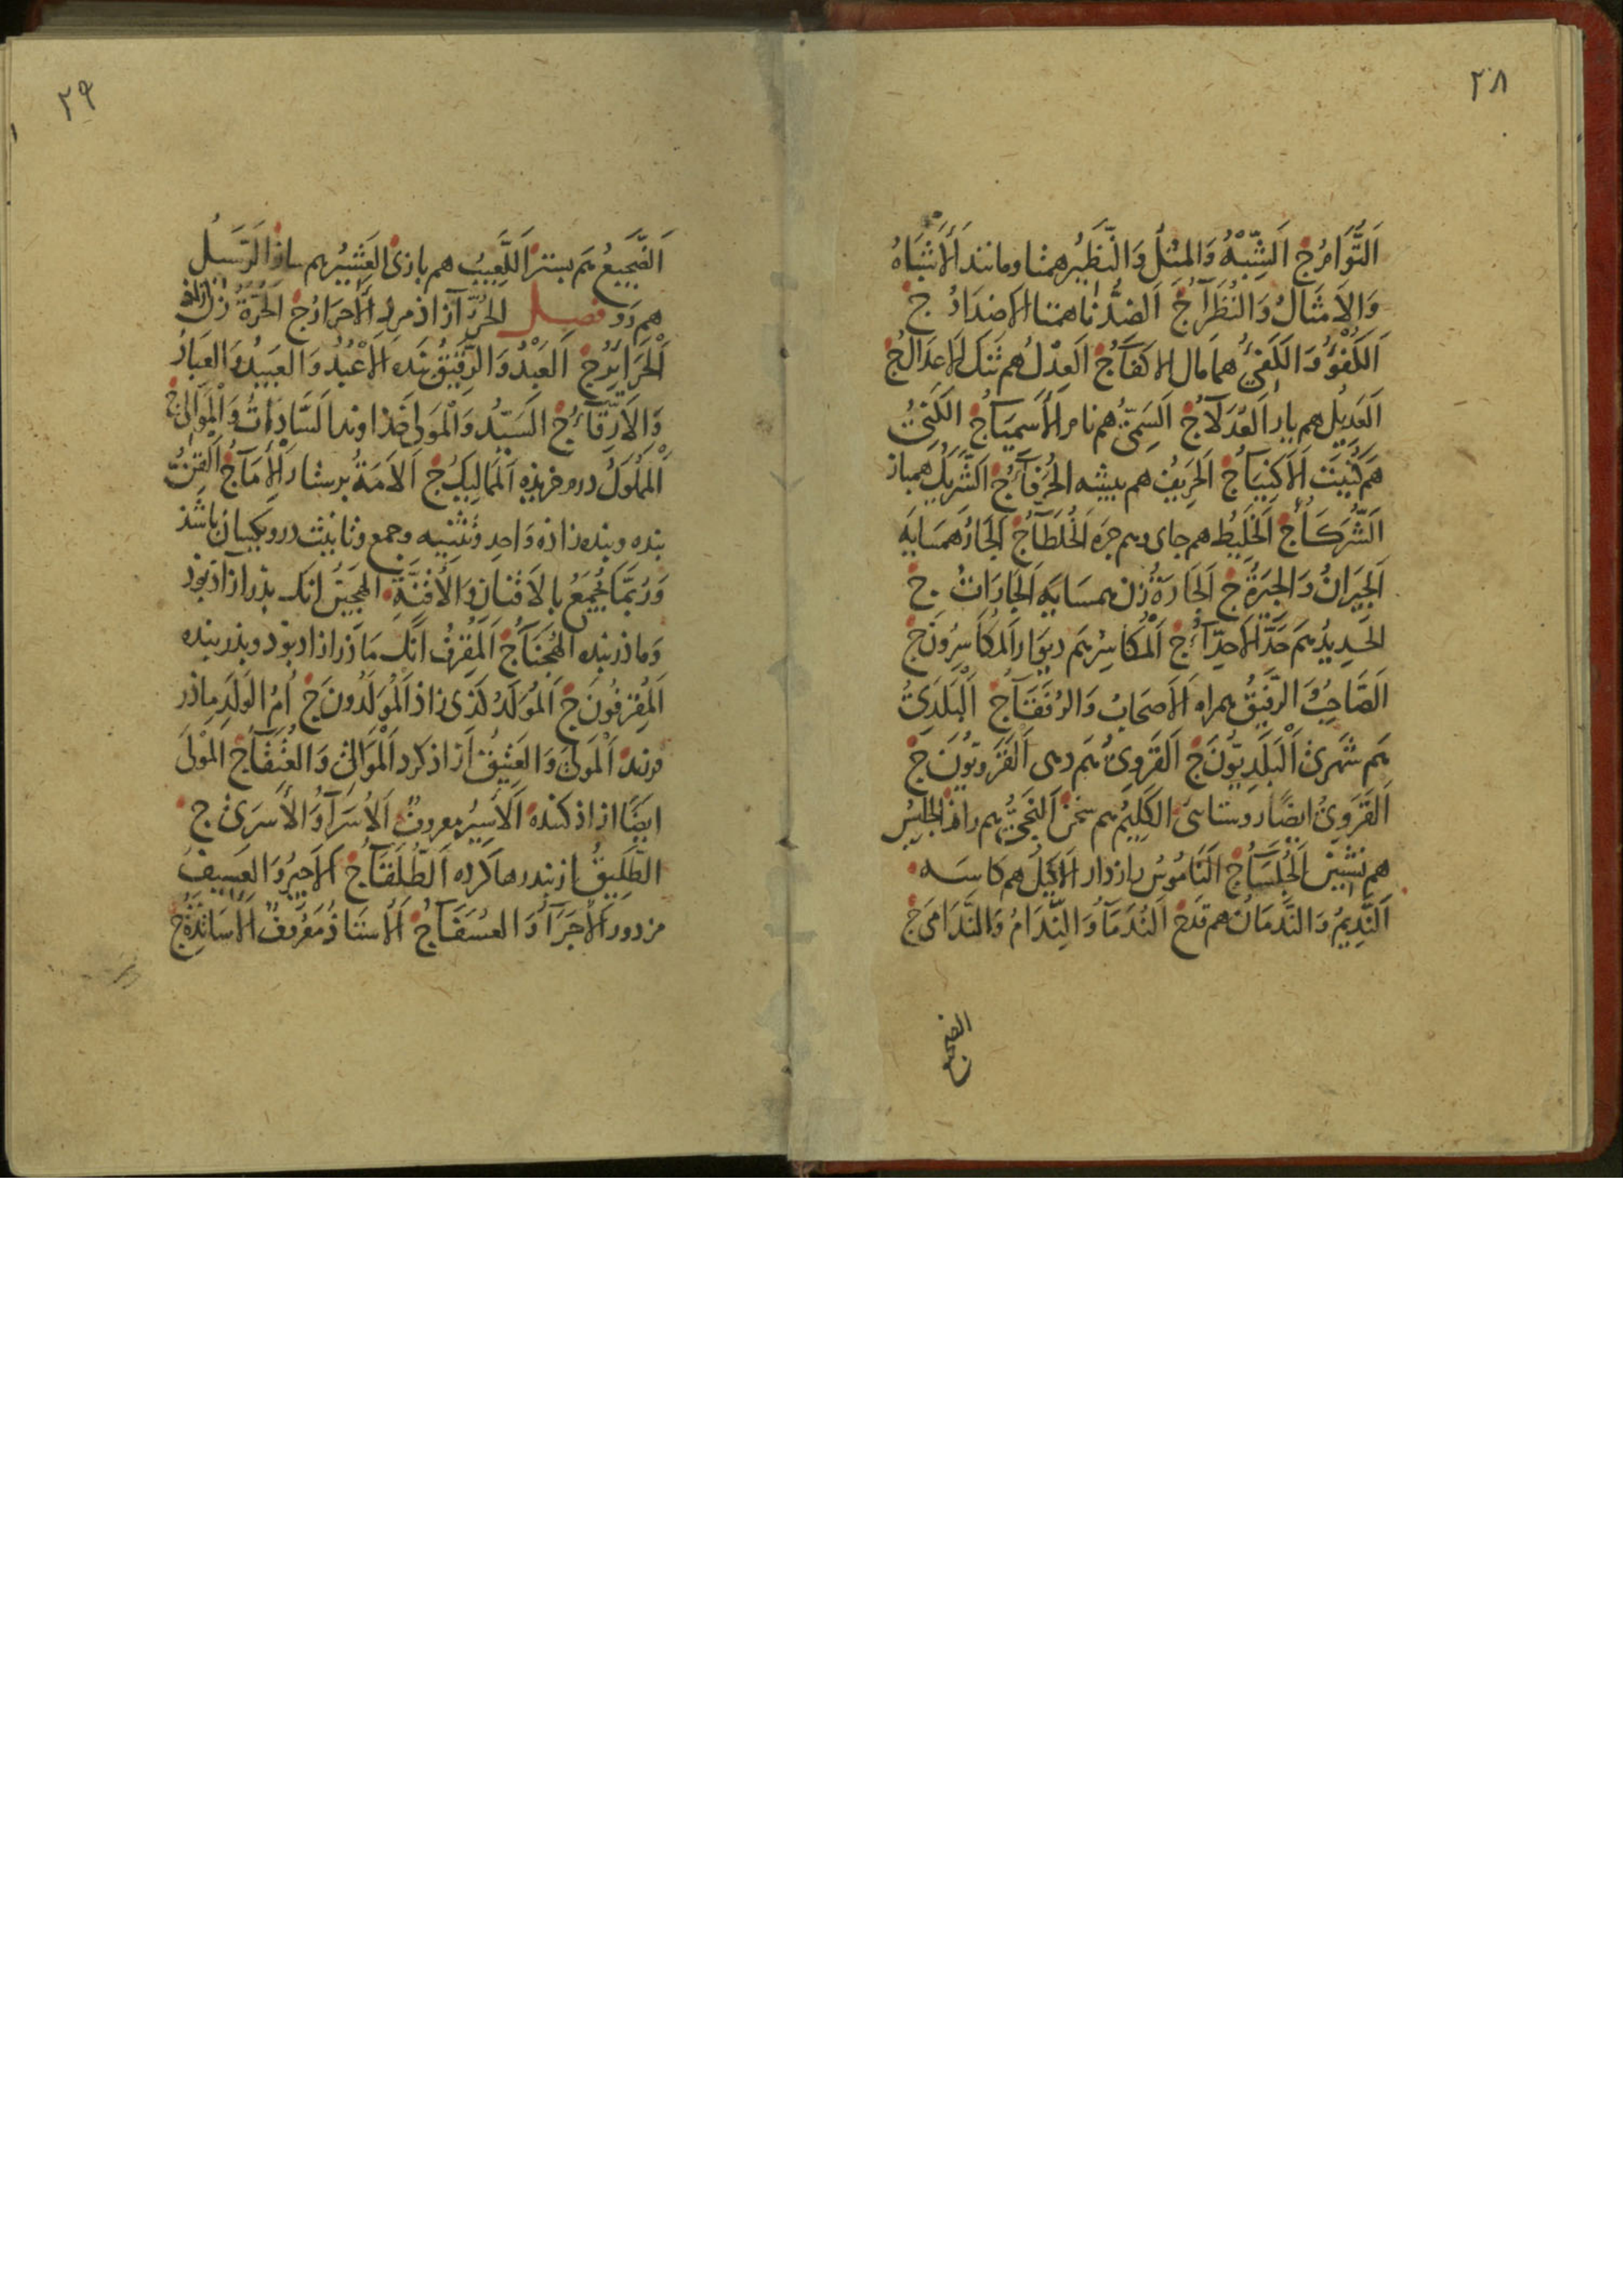 ٢٨
اَلتَّوَامُ ج اَلشِّبْهُ وَالمِثْلُ وَالنَّظِيرُ همتا ومانند اَلْاَشْبَاهُ
وَالاَمْثَالُ وَالنُّظَرَآءُ ج اَلضِّدُّ ناهمتا الاَضدَادُ ج
اَلكُفْوُ وَالكَفِیُّ همامال الاكفَآءُ ج اَلعِدْلُ هم تنك الاعدَالُ ج
اَلعَدِيلُ هم بار اَلعُدَلَآءُ ج اَلسَمِیُّ هم نام اَلْاَسمِيَآءُ ج الكَنِیُّ
هَم كُنِيَت اَلْاَكنِيَآءُ ج اَلحَرِيفُ هم پیشه الحُرَفَآءُ ج اَلشَّرِيكُ همباز
اَلشُّرَكَآءُ ج اَلخَلِيطُ هم جای وهم جره اَلخُلَطَآءُ ج اَلجَارُ همسَايَه
اَلجِيرَانُ وَالجِيرَةُ ج اَلجَارَةُ زن همسَايَه اَلجَارَاتُ ج
الحَدِيدُ هم حَدّ اَلاَحِدَّآءُ ج اَلْمُكَاسِرُ هَم ديوَار اَلمُكَاسِرُونَ ج
اَلصَّاحِبُ وَالرَّفِيقُ همراه اَلْاَصحَابُ وَالرُفَقَآءُ ج اَلْبَلَدِیُّ
هَم شَهری اَلْبَلَدِيُّونَ ج اَلقَرَوِیُّ هَم دهی اَلْقَرَوِيُّونَ ج
اَلقَرَوِیُّ ايضًا روستائی الكَلِيمُ هم سخن اَلنَجِیُّ هم راز اَلجَلِيسُ
هم نشین اَلجُلَسَآءُ ج اَلنَّامُوسُ رازدار اَلاَكِيلُ هم كاسَه
اَلنَّدِيمُ وَالنَّدمَانُ هم قدح اَلنُدَمَآءُ وَالنِّدَامُ وَالنَّدَامَی ج
الضجیع
٢٩
اَلضَّجِيعُ هَم بستر اَللَّعِيبُ هم بازی اَلعَشِيرُ هم ساز اَلرَّسِيلُ
هم رَو فصل الحُرُّ آزاذ مرد اَلْاَحرَارُ ج اَلحُرَّةُ زن آزاذ
اَلْحَرَائِرُ ج اَلعَبْدُ وَالرَّقِيقُ بَنده اَلاَعْبُدُ وَالعَبِيدُ وَالعِبَادُ
وَالاَرِقَّآءُ ج السَيِّدُ وَالْمَولَی خذاوند السَّادَاتُ وَالْمَوَالِی ج
اَلْمَملُوكُ درم خریده اَلمَمَالِيكُ ج اَلاَمَةُ پرستار اَلْاِمَآءُ ج اَلقِنُّ
بنده وبنده زاذه وَاحِد وَتثنِيه وجمع وتانيث درو یکسان باشَذ
وَرُبَّمَا يُجْمَعُ بِالاَقنَانِ وَالاَقِنَّةِ الهَجِينُ انك پذر آزاذ بوذ
وَماذر بنده الهُجَنَآءُ ج اَلمُقرِفُ انك مَاذر ازاذ بوذ وپذر بنده
اَلمُقرِفُونَ ج اَلْمُوَلَّدُ كذی زاذ اَلْمُوَلَّدُونَ ج اُمُّ الوَلَدِ ماذر
فرزند اَلْمَولَی وَالعَتِيقُ آزاذ كرد اَلْمَوَالِی وَالعُتَقَآءُ ج اَلْمَولَی
ايضًا ازاذ كننده اَلاَسِيرُ معروفٌ اَلاُسَرَآءُ وَالاَسرَی ج
الطَّلِيقُ از بند رها كرده اَلطُّلَقَآءُ ج اَلاَجِيرُ وَالعَسِيفُ
مزدور اَلْاُجَرَآءُ وَالعُسَفَآءُ ج اَلاُستَاذُ مَعرُوفٌ اَلْاَسَاتِذَةُ ج